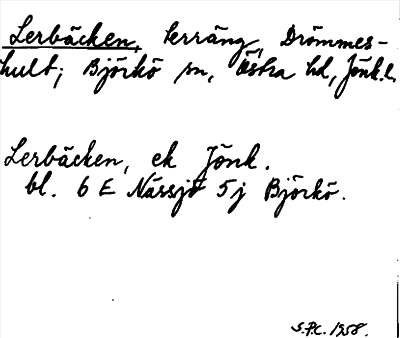 Lerbäcken, terräng, Drömmes-
hult; Björkö sn, Östra hd, Jönk.l.
Lerbäcken, ek Jönk.
bl. 6 E Nässjö 5j Björkö.
S.P.C. 1958.